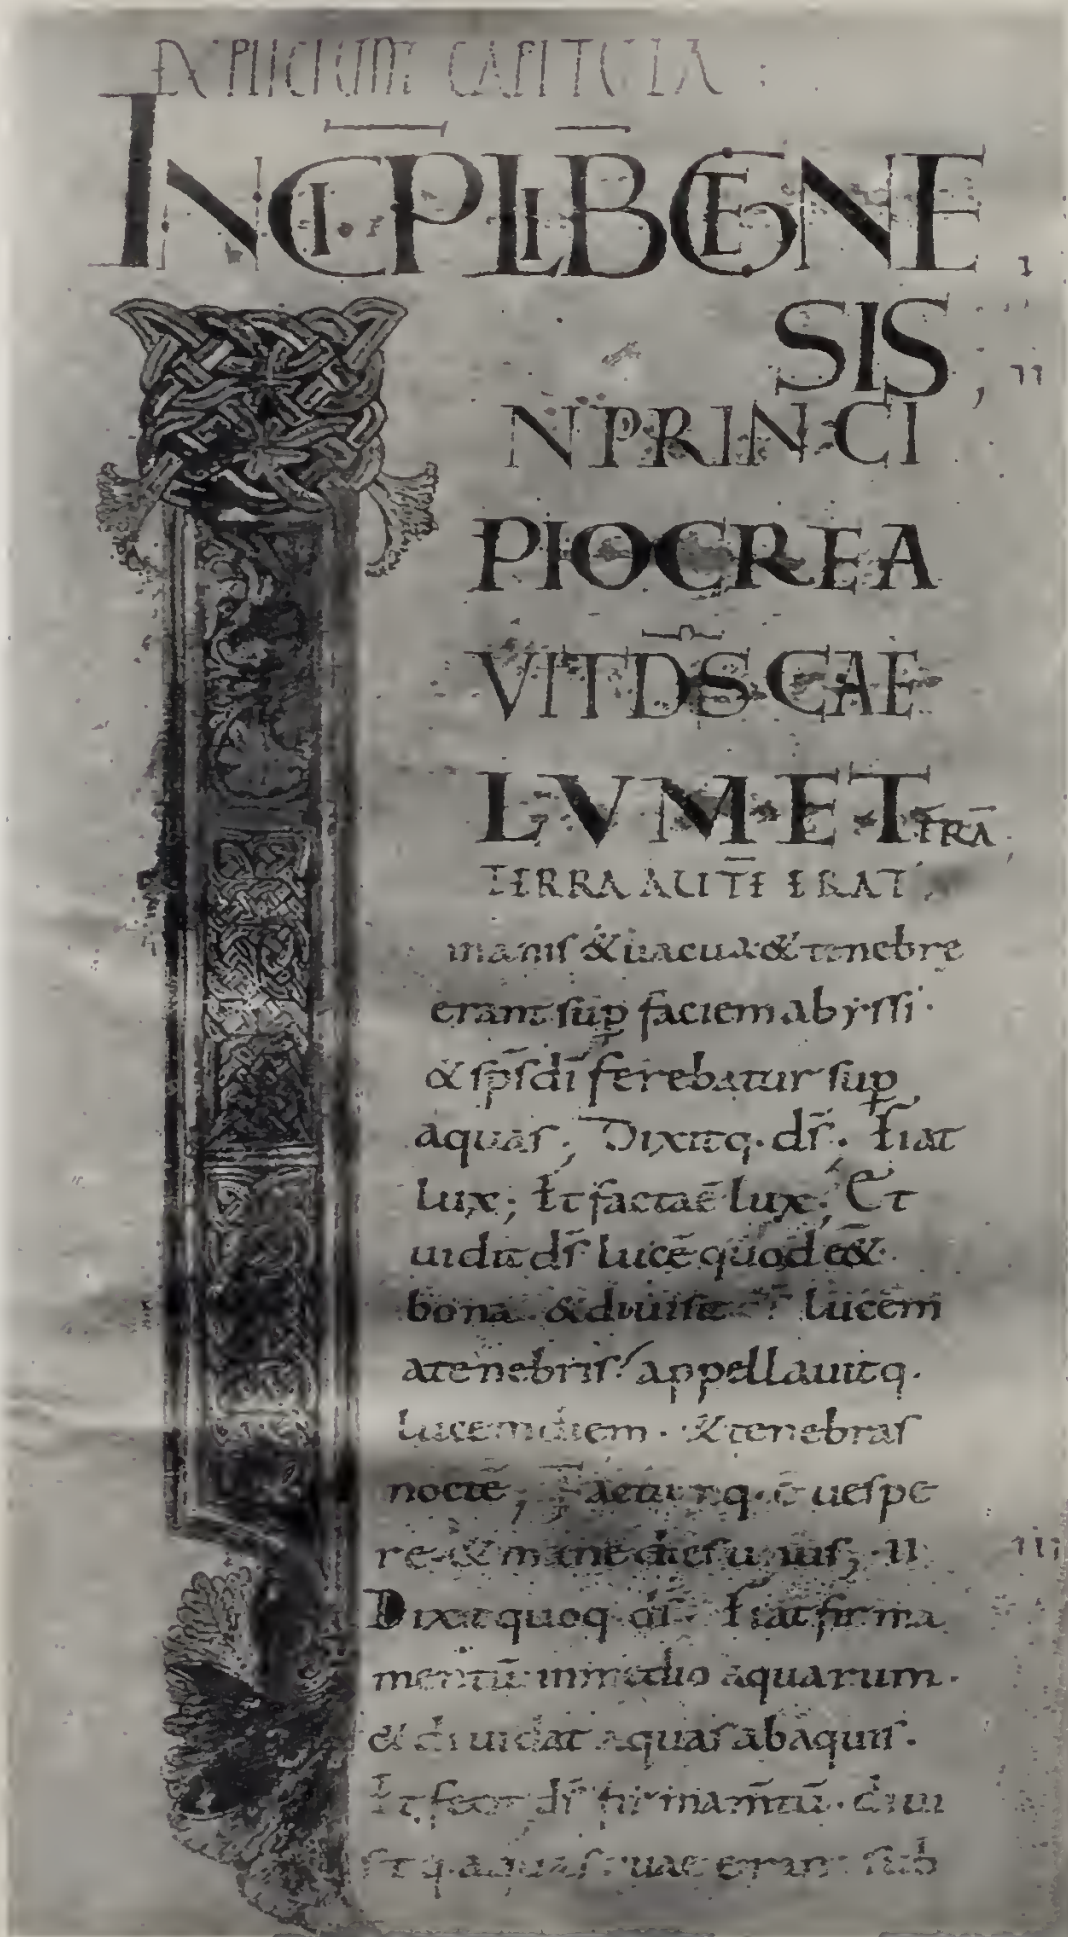 EXPLICIUNT CAPITULA :
INCIP̄ LIB̄ GENE
SIS ;
N PRINCI
PIO CREA
VIT D̄S CAE
LVM · ET T̄RĀ
TERRA AUTĒ ERAT
inanis & uacua & tenebrę
erant sup̄ faciem abyssi ·
& sp̄s dī ferebatur sup̄
aquas ; Dixitq · d̄s · Fiat
lux ; Et facta ē lux ; Et
uidit d̄s lucē quod eēt
bona & diuisit lucem
a tenebris appellauitq ·
lucem diem · & tenebras
noctē ; Factumq · ē uespe
re & mane dies unus ; II
Dixit quoq d̄s Fiat firma
mentū in medio aquarum ·
& diuidat aquas ab aquis ·
Et fecit d̄s firmam̄tū · diui
sitq aquas quae erant sub